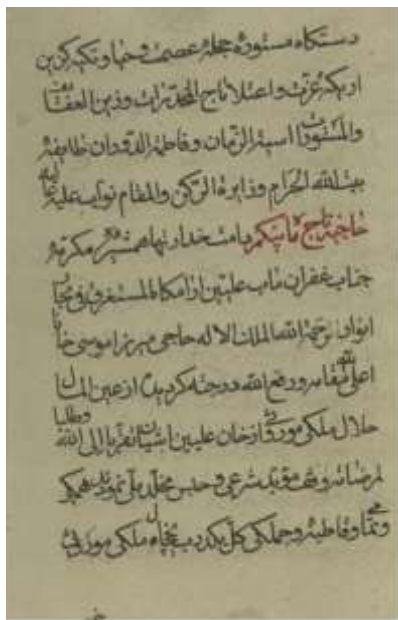 دستکاه مستوره حجله عصمت وحیا و تکیه کزین
اریکه عزت واعتلا تاج المخدرات وزین العفائف
والمستورات اسیة الزمان وفاطمة الدوران طایفه
بیت الله الحرام وزایرة الرکن والمقام نواب علیه عالیه
حاجیه تاج بیکم دامت خدارتها همشیره مکرمه
جناب غفران ماب علیین ارامکاه المستغرق فی بحار
انوار رحمة الله الملک الاله حاجی میرزا موسی خان
اعلی الله مقامه ورفع الله درجته کردید از عین المال
حلال ملکی موروثی از خان علیین اشیان تقربا الی الله وطلبا
لمرضاته وقف موبد شرعی وحبس مخلد ملی نمودند همکی
وتمامی وقاطبه وجملکی کل یکدرب ملکی موروثی